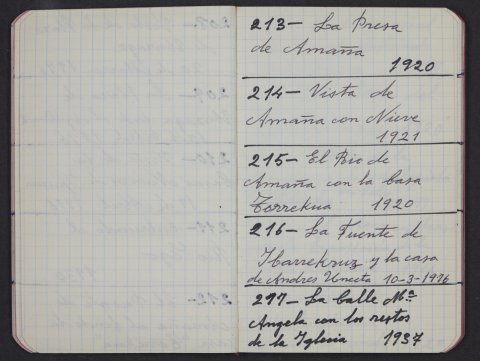 213- La Presa
de Amaña
1920
214- Vista de
Amaña con Nieve
1921
215- El Rio de
Amaña con la Casa
Torrekua 1920
216- La Fuente de
Ibarrekruz y la casa
de Andres Unceta 10-3-1976
217- La Calle Mª
Angela con los restos
de la Iglesia 1937
208-
209-
210-
211-
212-